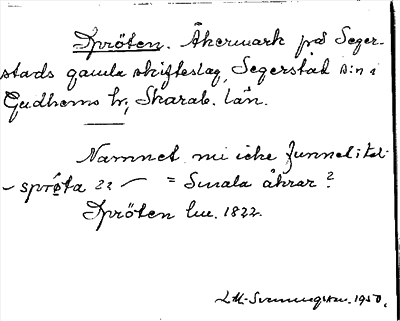 Spröten. Åkermark på Seger-
stads gamla skifteslag, Segerstad s:n i
Gudhems hr, Skarab. län.
Namnet nu icke funnet i tal.
- sprǿta 22 - = Smala åkrar?
Spröten lm. 1822.
1950.